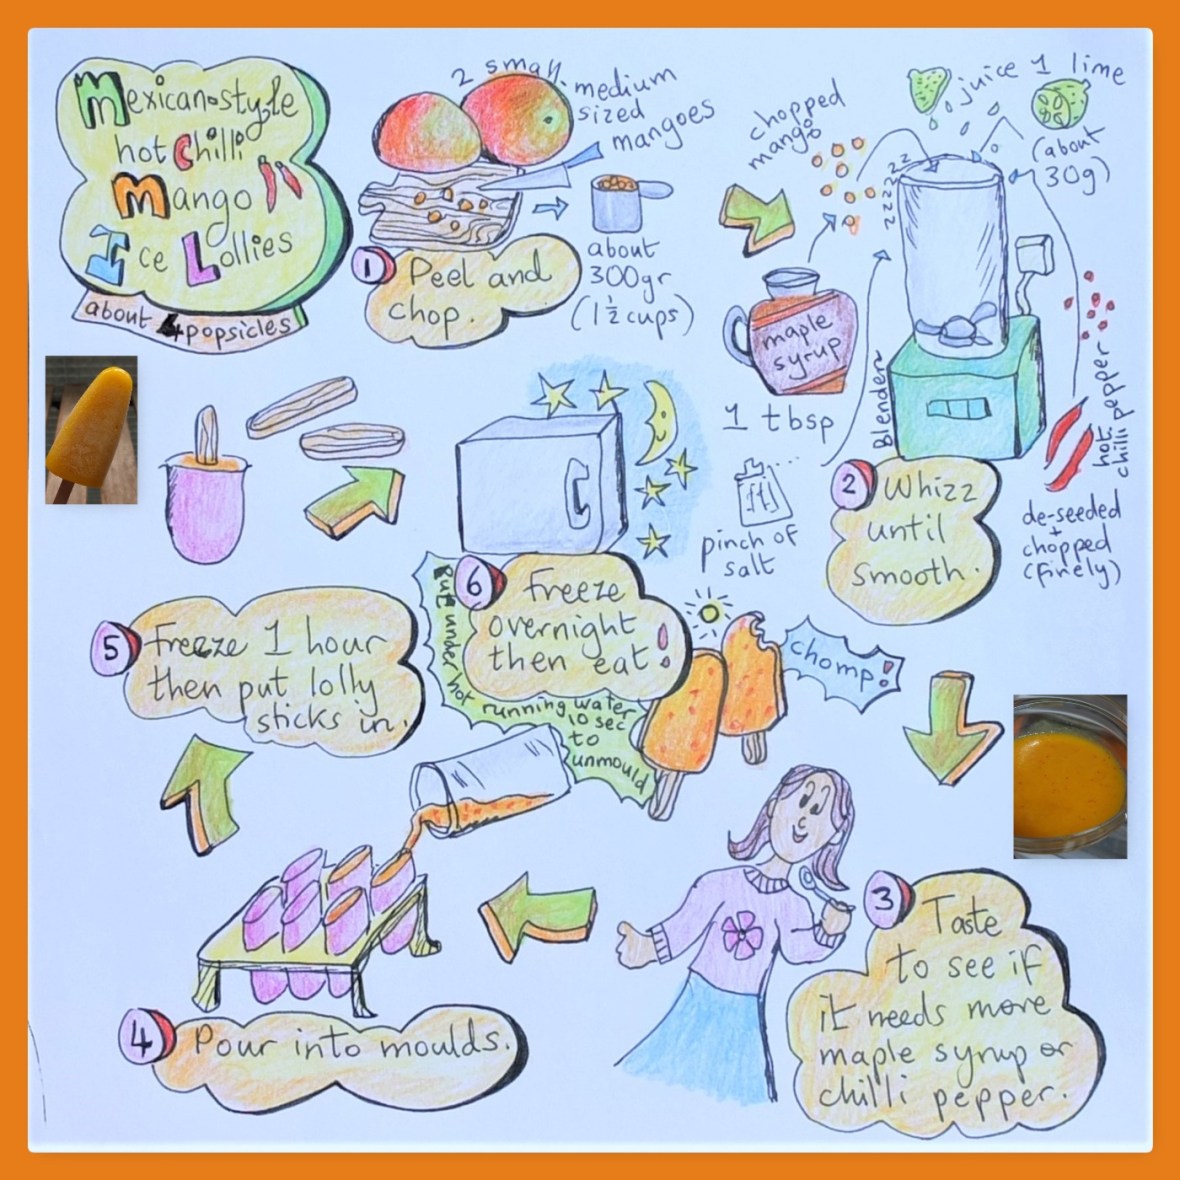 Mexican-style
hot Chilli
Mango
Ice Lollies
about 4 popsicles
2 small
medium
sized
mangoes
about
300gr
(1 1/2 cups)
1 Peel and
chop.
chopped
mango
juice 1 lime
(about
30g)
zzzzzz
maple
syrup
1 tbsp
pinch of
salt
Blender
hot
chilli pepper
de-seeded
+
chopped
(finely)
2 Whizz
until
smooth.
3 Taste
to see if
it needs more
maple syrup or
chilli pepper.
4 Pour into moulds.
5 Freeze 1 hour
then put lolly
sticks in.
6 Freeze
overnight
then eat!
Put under hot running water
10 sec
to
unmould
chomp!